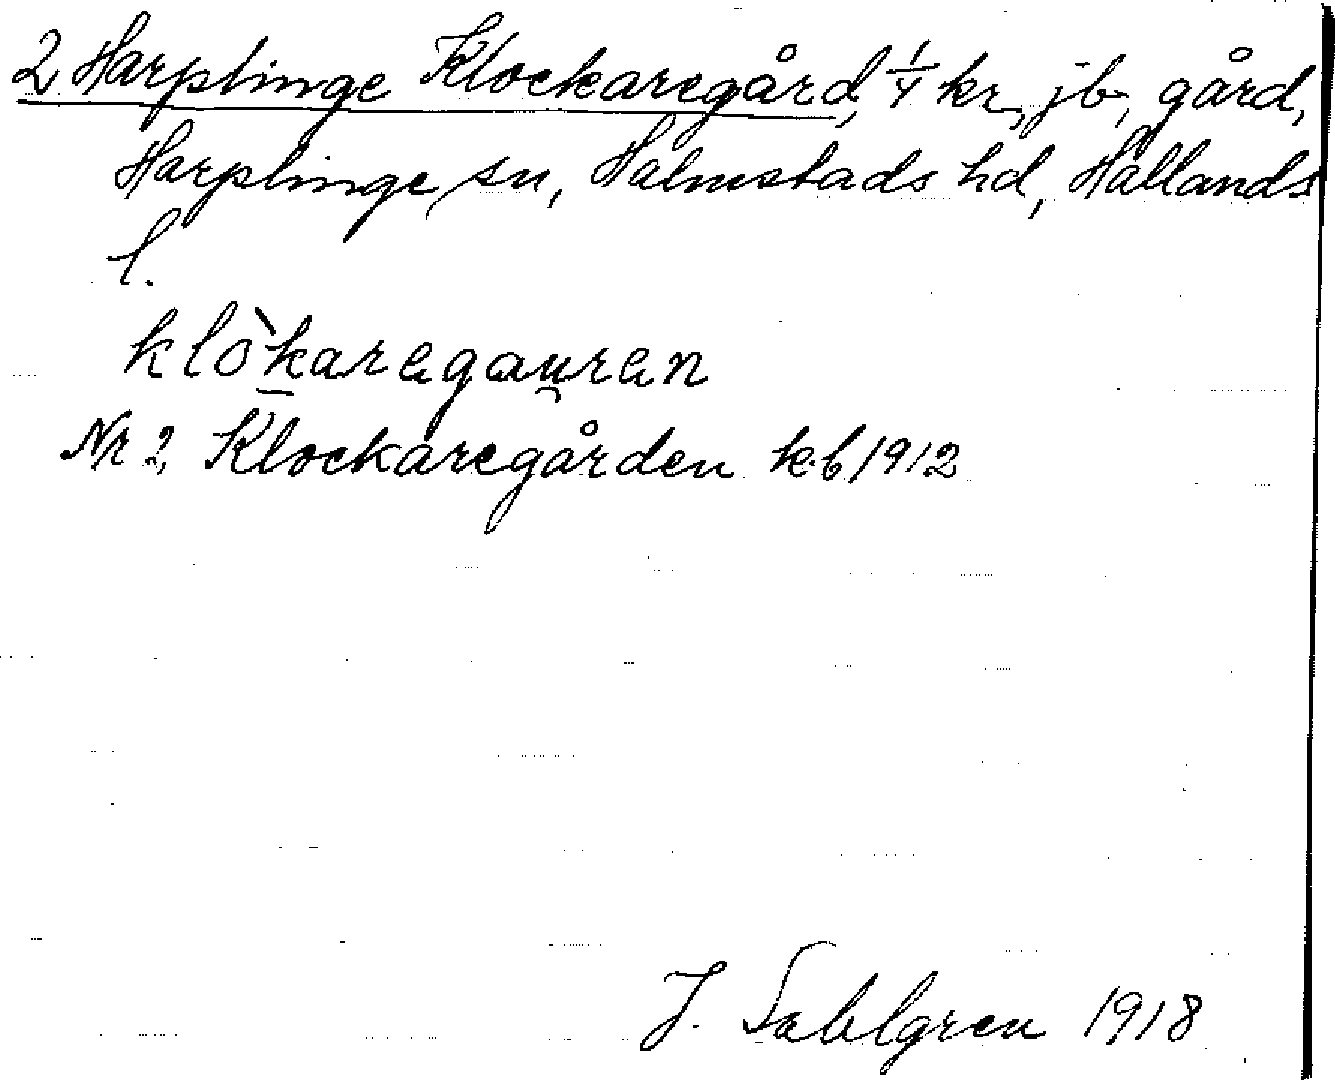 2 Harplinge Klockaregård, 1/4 kr, jb, gård,
Harplinge sn, Halmstads hd, Hallands
l.
klò̱karagau̯ran
Nr 2, Klockaregården kb 1912
J. Sahlgren 1918